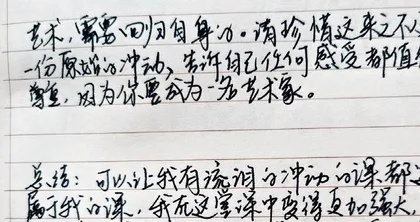 艺术，需要回归自身的。请珍惜这来之不
一份原始的冲动，告许自己任何感受都值
尊重，因为你要成为一名艺术家。
总结：可以让我有流泪的冲动的课都
属于我的课，我在这堂课中变得更加强大